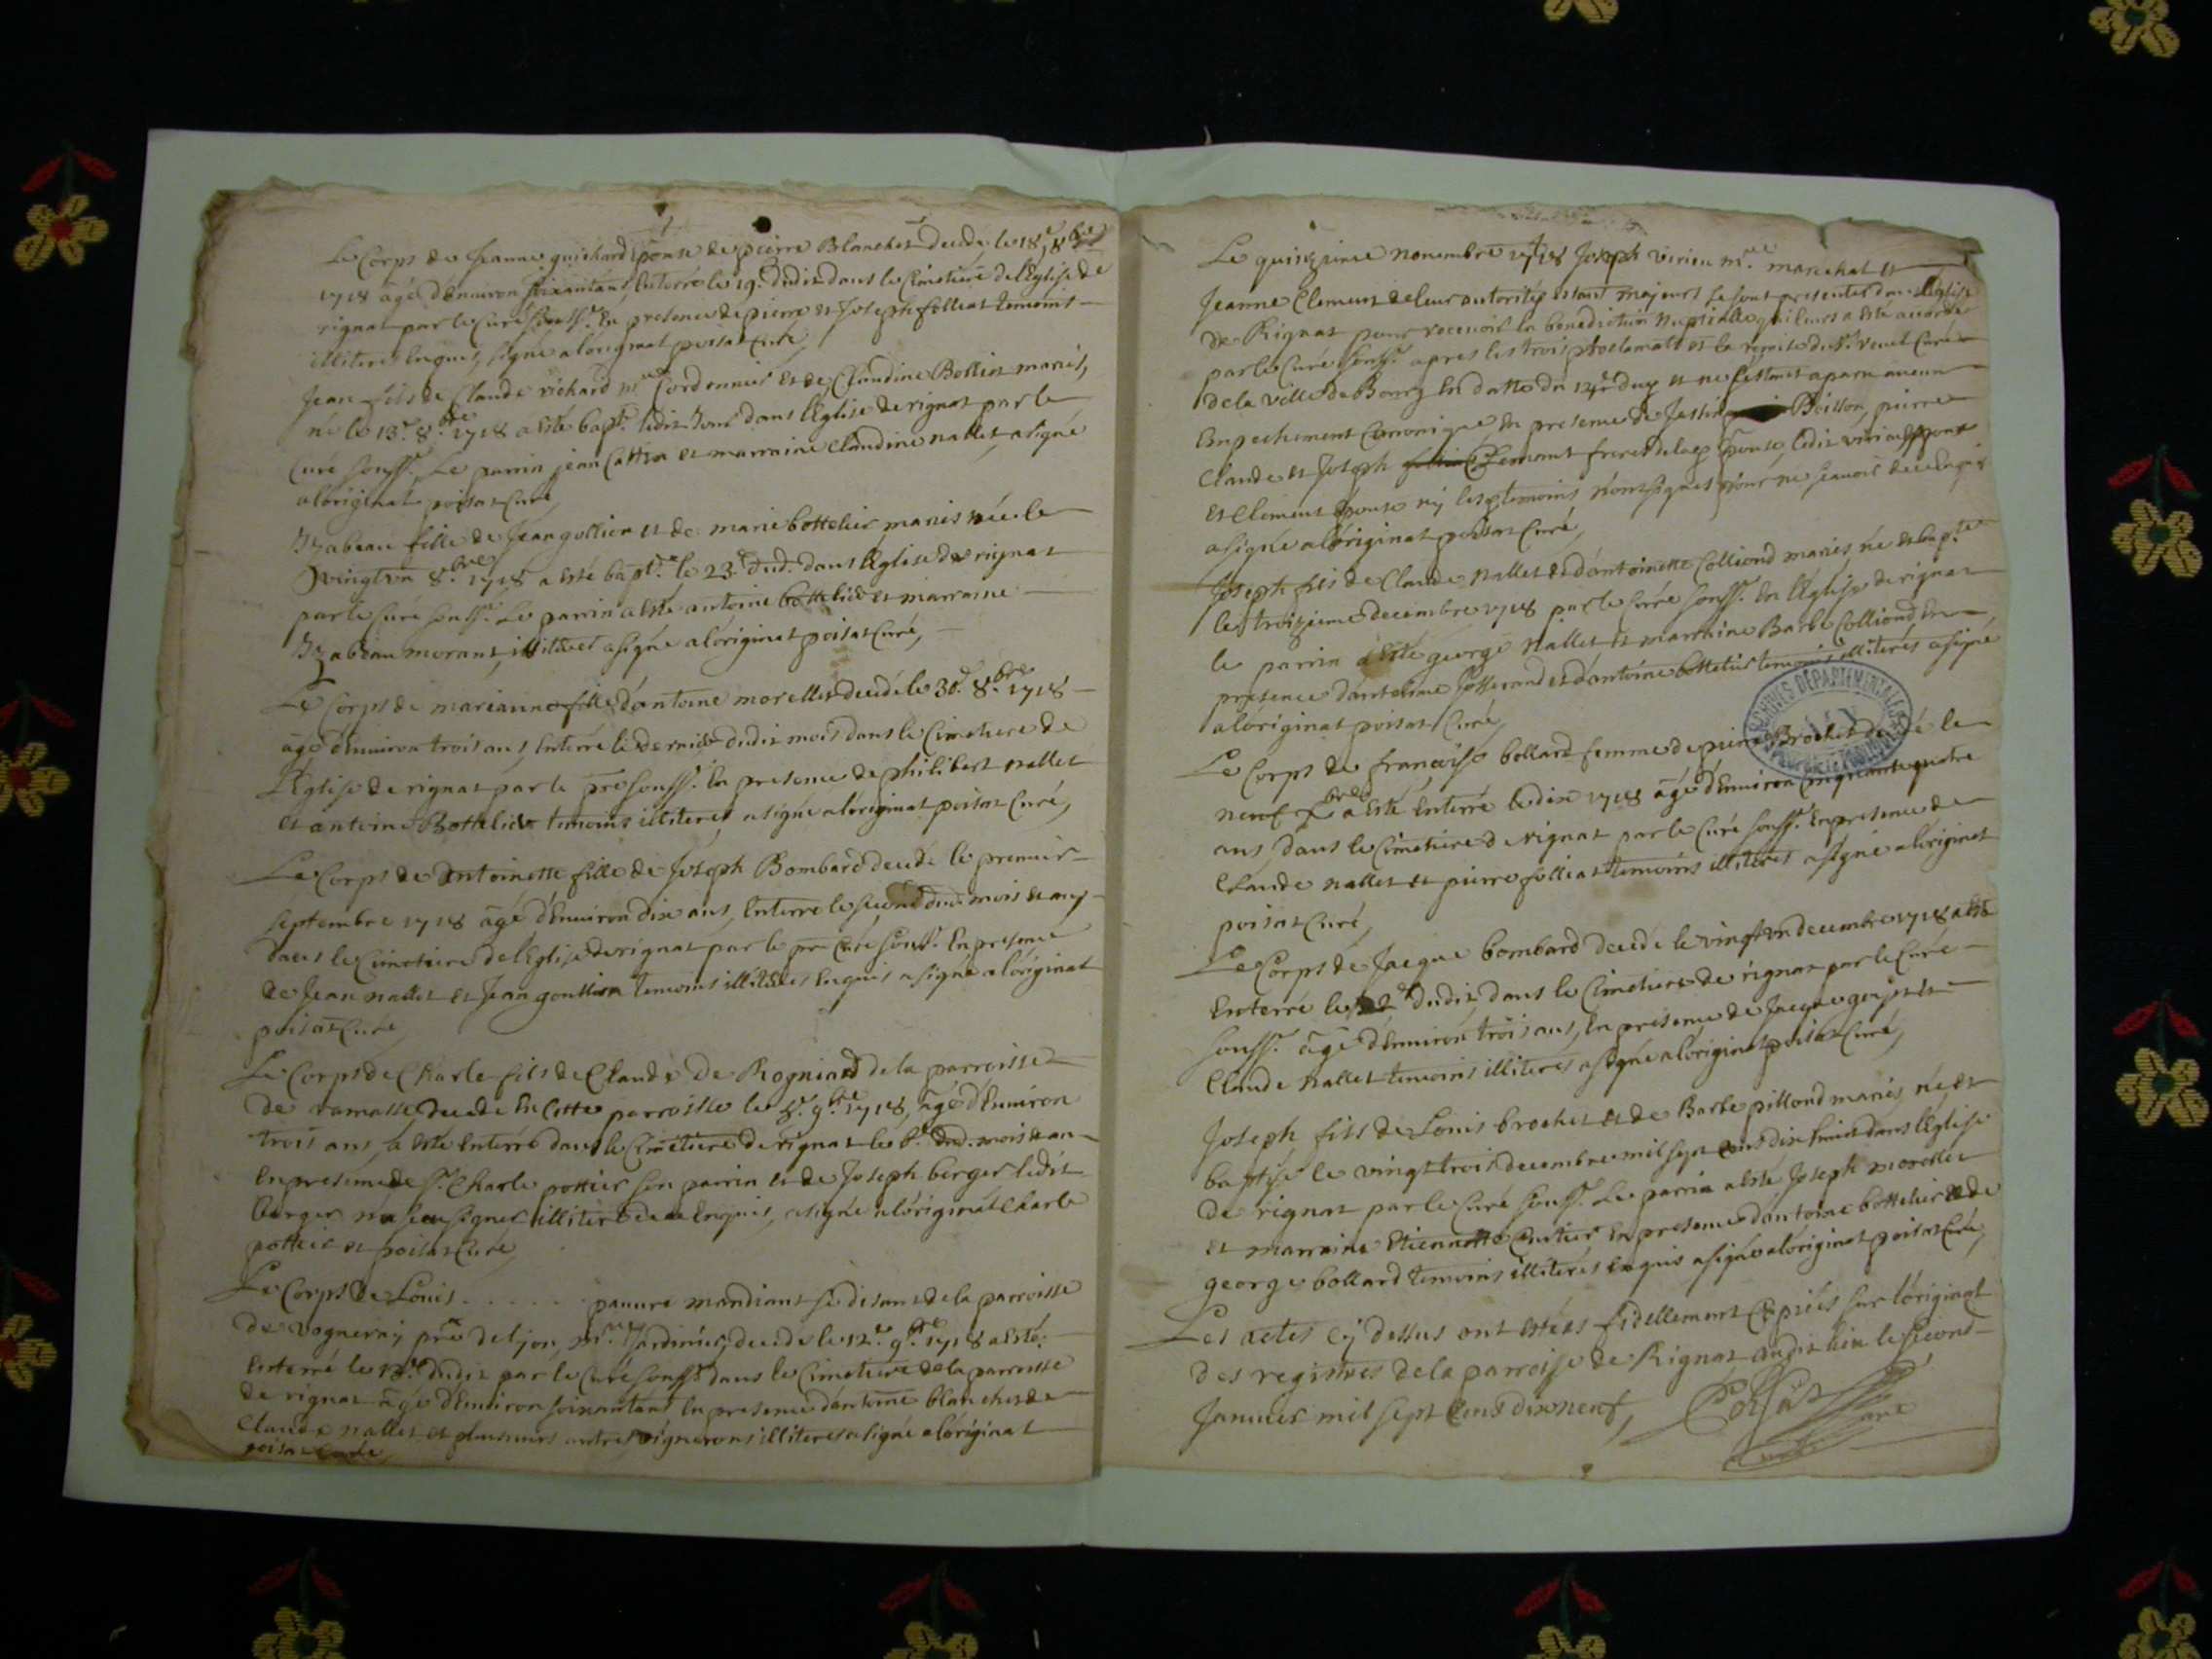 Le Corps de Jeanne guichard Epouse de pierre Blanchet decedé le 18.e 8.bre
1718 âgé d'Enuiron soixantans, Enterré le 19.e dudit dans le Cimetiere de l'Eglise de
rignat par le Curé souss.é En presence de pierre et Joseph folliat temoins
illiteres Enquis, signé aloriginal poisat Curé,
Jean fils de Claude richard m.e Cordonnier et de Claudine Bollier mariés,
né le 13.e 8.bre 1718 a Esté bapt.é ledit Jour dans l'Eglise de rignat par le
Curé souss.é Le parrin jean Cattin et marraine Claudine nallet, a signé
aloriginal poisat Curé,
Izabeau fille de Jean gollion et de marie bottelier mariés née le
vingtvn 8.bre 1718 a Esté bapt.e le 23.e dud. dans l'Eglise de rignat
par le Curé souss.é Le parrin a Esté antoine bottelier et marraine
Izabeau morant, illiteres a signé aloriginal poisat Curé,
Le Corps de marianne fille d'antoine morellet decedé le 30.e 8.bre 1718
âgé d'Enuiron trois ans, Enterré le dernier dudit mois dans le Cimetiere de
l'Eglise de rignat par le pre souss.é En presence de philibert nallet
et antoine Bottelier temoins illiteres a signé aloriginal poisat Curé,
Le Corps de Antoinette fille de Joseph Bombard decedé le premier
septembre 1718 âgé d'Enuiron dix ans, Enterré le second dud. mois et an
dans le Cimetiere de l'Eglise de rignat par le pre Curé souss.é En presence
de Jean nallet et Jean goullion temoins illiteres Enquis a signé aloriginal
poisat Curé,
Le Corps de Charle fils de Claude De Rogniard de la parroisse
de ramasse, decedé En Cette parroisse le 5.e 9.bre 1718, âgé d'Enuiron
trois ans, a Esté Enterré dans le Cimetiere de rignat le 6.e dud. mois et an
En presence de s.r Charle pottier son parrin et de Joseph berger ledit
berger n'a sceu signer illiteré de ce Enquis, a signé aloriginal Charle
pottier et poisat Curé,
Le Corps de Louis . . . . . . pauure mandiant se disant de la parroisse
de vogneray prés de lyon, m.e Jardinier, decedé le 12.e 9.bre 1718 a Esté
Enterré le 13.e dudit par le Curé souss.é dans le Cimetiere de la parroisse
de rignat âgé d'Enuiron soixantans En presence d'antoine blanchet de
Claude nallet et plusieurs autres vignerons illiteres a signé aloriginal
poisat Curé,
Le quinzieme nouembre 1718 Joseph virieu m.e marechal et
Jeanne Clement de leur autorités estant majeurs se sont presentés dans l'Eglise
de Rignat pour receuoir la benediction nuptialle qui leurs a Esté accordé
par le Curé souss.é apres les trois proclamats et la remise du s.r Curé
de la ville de Bourg En datte du 14.e du pt et ne s'estant aparu aucun
Empechement Canonique En presence de Boisson, pierre
Claude et Joseph Clemant freres de lad. Epouse, ledit virieu Epoux
et Clement Epouse ny lesd. temoins n'ont signés pour ne sçauoir de ce Enquis
a signé aloriginal poisat Curé,
Joseph fils de Claude nallet et d'antoinette Colliond mariés, né et bapt.sé
le troizieme decembre 1718 par le Curé souss.é En l'Eglise de rignat
le parrin a Esté george nallet et marraine Barbe Colliond En
presence d'anthelme Josserand et d'antoine bottelier temoins illiterés a signé
aloriginal poisat Curé,
Le Corps de françoise bollard femme de pierre Brochet decedé le
neuf X.bre a Esté Enterré le dix 1718 âgé d'Enuiron cinquante quatre
ans, dans le Cimetiere de rignat par le Curé souss.é En presence de
Claude nallet et pierre folliat temoins illiteres a signé aloriginal
poisat Curé,
Le Corps de Jacque bombard decedé le vingtvn decembre 1718 a Esté
Enterré le 22.e dudit, dans le Cimetiere de rignat par le Curé
souss.é âgé d'Enuiron trois ans, En presence de Jacque gojet et
Claude nallet temoins illiteres a signé aloriginal poisat Curé,
Joseph fils de Louis brochet et de Barbe pillond mariés, né, et
baptisé le vingt trois decembre mil sept cens dix huit dans l'Eglise
de rignat par le Curé souss.é Le parrin a Esté Joseph morellet
et marraine Etiennette Cuitier En presence d'antoine bottelier et de
george bollard temoins illiterés Enquis a signé aloriginal poisat Curé,
Les actes Cy dessus ont Estées fidellement Copiés sur l'original
des registres de la parroisse de Rignat audit lieu le second
Januier mil sept Cens dixneuf,
Poisat
Curé
ARCHIVES DEPARTEMENTALES
AIN